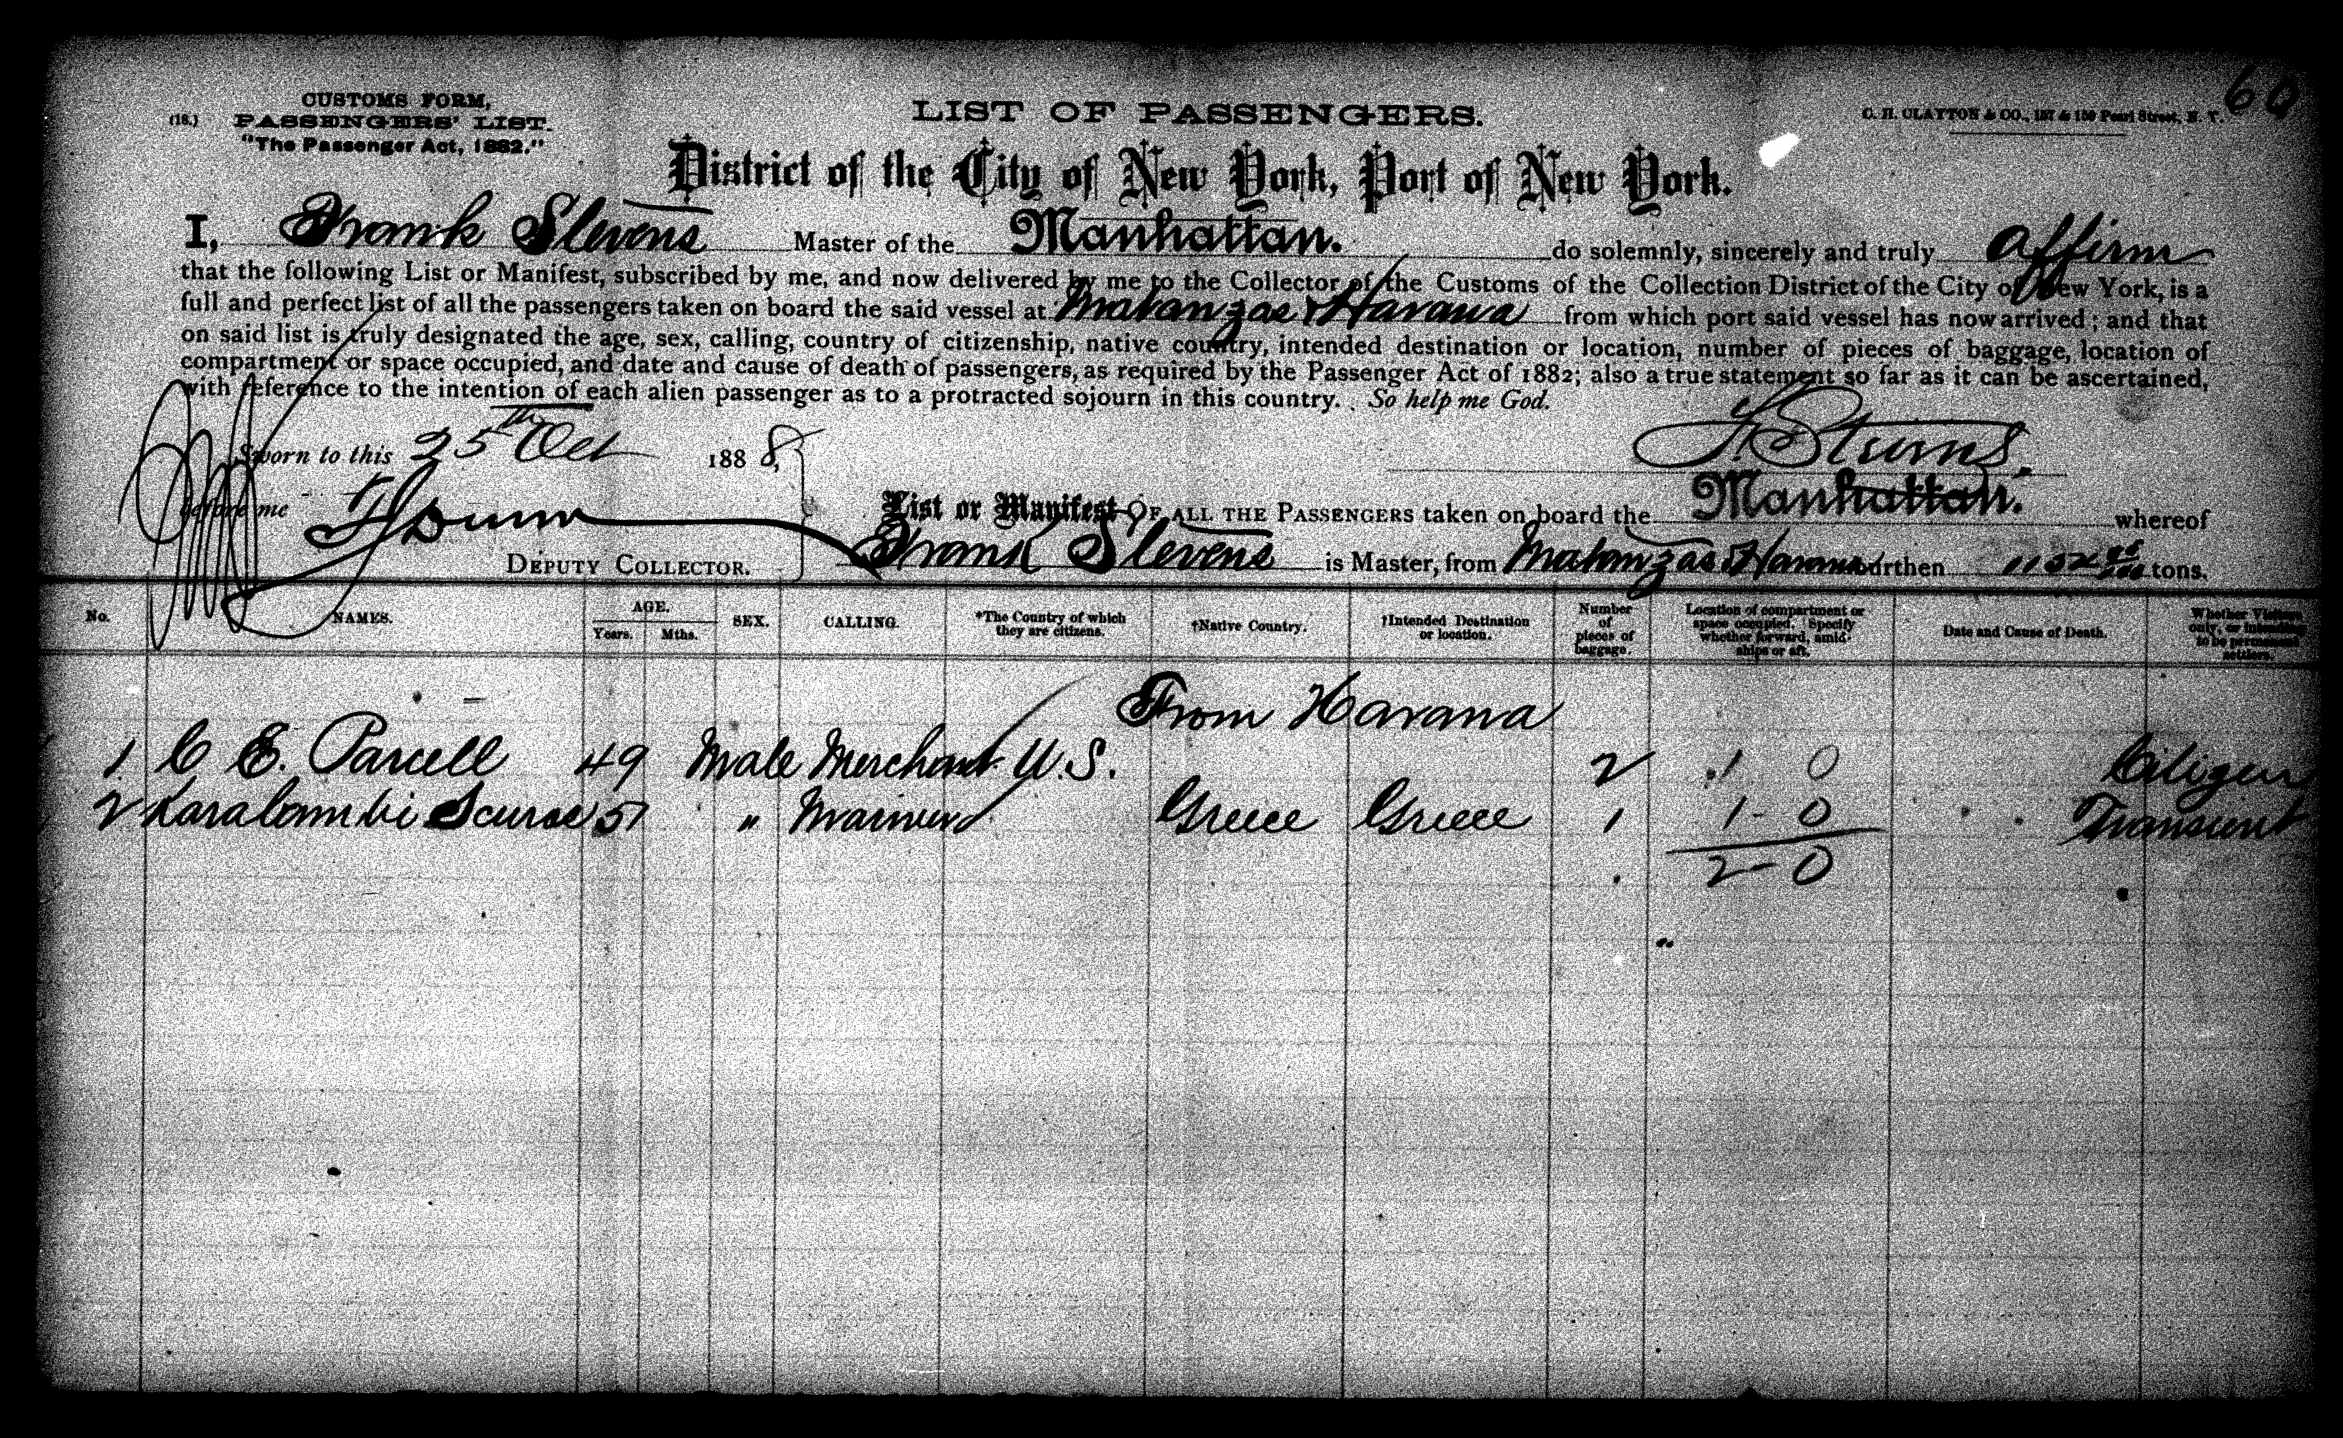 60
CUSTOMS FORM,
(18.) PASSENGERS' LIST.
"The Passenger Act, 1882."
LIST OF PASSENGERS.
C. H. CLAYTON & CO., 157 & 159 Pearl Street, N. Y.
District of the City of New York, Port of New York.
I, Frank Stevens Master of the Manhattan. do solemnly, sincerely and truly affirm
that the following List or Manifest, subscribed by me, and now delivered by me to the Collector of the Customs of the Collection District of the City of New York, is a
full and perfect list of all the passengers taken on board the said vessel at Matanzas & Havana from which port said vessel has now arrived; and that
on said list is truly designated the age, sex, calling, country of citizenship, native country, intended destination or location, number of pieces of baggage, location of
compartment or space occupied, and date and cause of death of passengers, as required by the Passenger Act of 1882; also a true statement so far as it can be ascertained,
with reference to the intention of each alien passenger as to a protracted sojourn in this country. So help me God.
Sworn to this 25th Oct 1888, F. Stevens.
before me
DEPUTY COLLECTOR.
List or Manifest OF ALL THE PASSENGERS taken on board the Manhattan. whereof
Frank Stevens is Master, from Matanzas & Havana burthen tons.
No. NAMES. AGE. Years. Mths. SEX. CALLING. *The Country of which they are citizens. †Native Country. †Intended Destination or location. Number of pieces of baggage. Location of compartment or space occupied. Specify whether forward, amidships or aft. Date and Cause of Death. Whether Visitors only, or intending to be permanent settlers.
From Havana
1 C E. Parcell 49 Male Merchant U.S. 2 1 0 Citizen
2 Karalambi 57 " Mariner Greece Greece 1 1 - 0 Transient
2 - 0